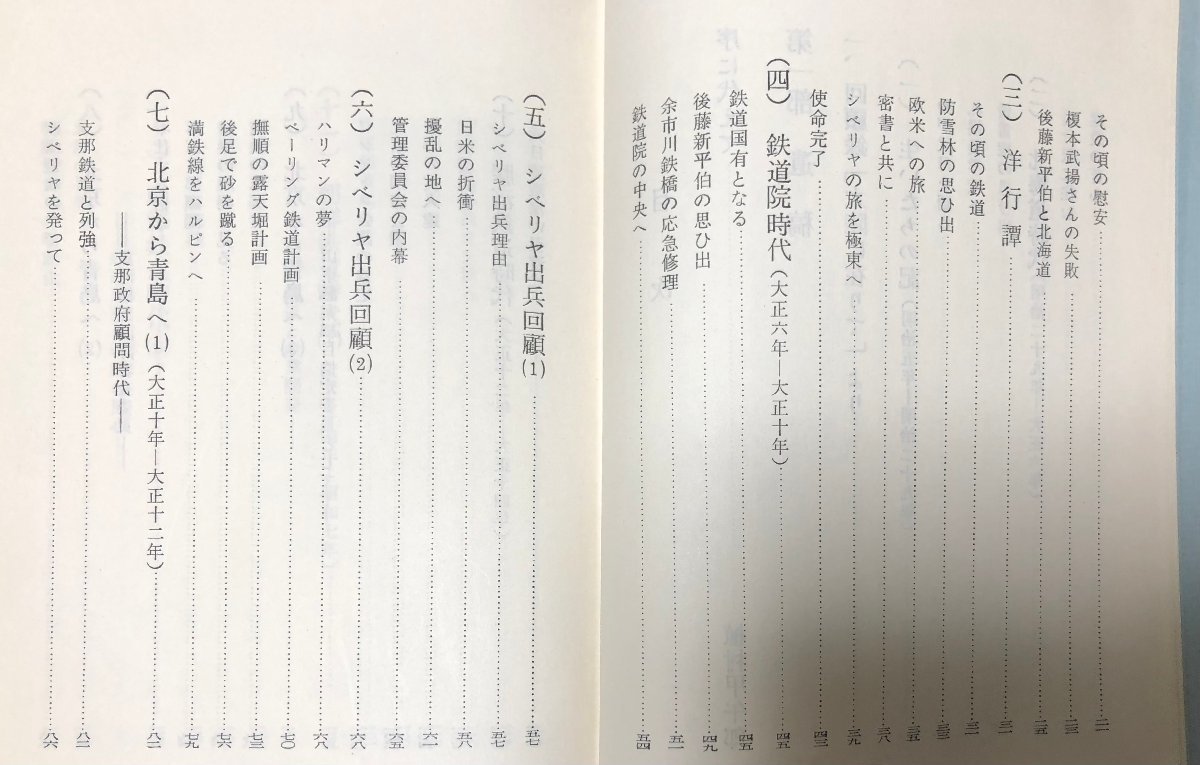 その頃の慰安……二一
榎本武揚さんの失敗……二三
後藤新平伯と北海道……二五
(三) 洋行譚……三一
その頃の鉄道……三一
防雪林の思ひ出……三三
欧米への旅……三五
密書と共に……三八
シベリヤの旅を極東へ……三九
使命完了……四三
(四) 鉄道院時代(大正六年―大正十年)……四五
鉄道国有となる……四五
後藤新平伯の思ひ出……四九
余市川鉄橋の応急修理……五一
鉄道院の中央へ……五四
(五) シベリヤ出兵回顧(1)……五七
シベリヤ出兵理由……五七
日米の折衝……五八
擾乱の地へ……六一
管理委員会の内幕……六五
(六) シベリヤ出兵回顧(2)……六八
ハリマンの夢……六八
ベーリング鉄道計画……七〇
撫順の露天堀計画……七三
後足で砂を蹴る……七六
満鉄線をハルピンへ……七九
(七) 北京から青島へ(1)(大正十年―大正十二年)……八二
――支那政府顧問時代――
支那鉄道と列強……八二
シベリヤを発つて……八六